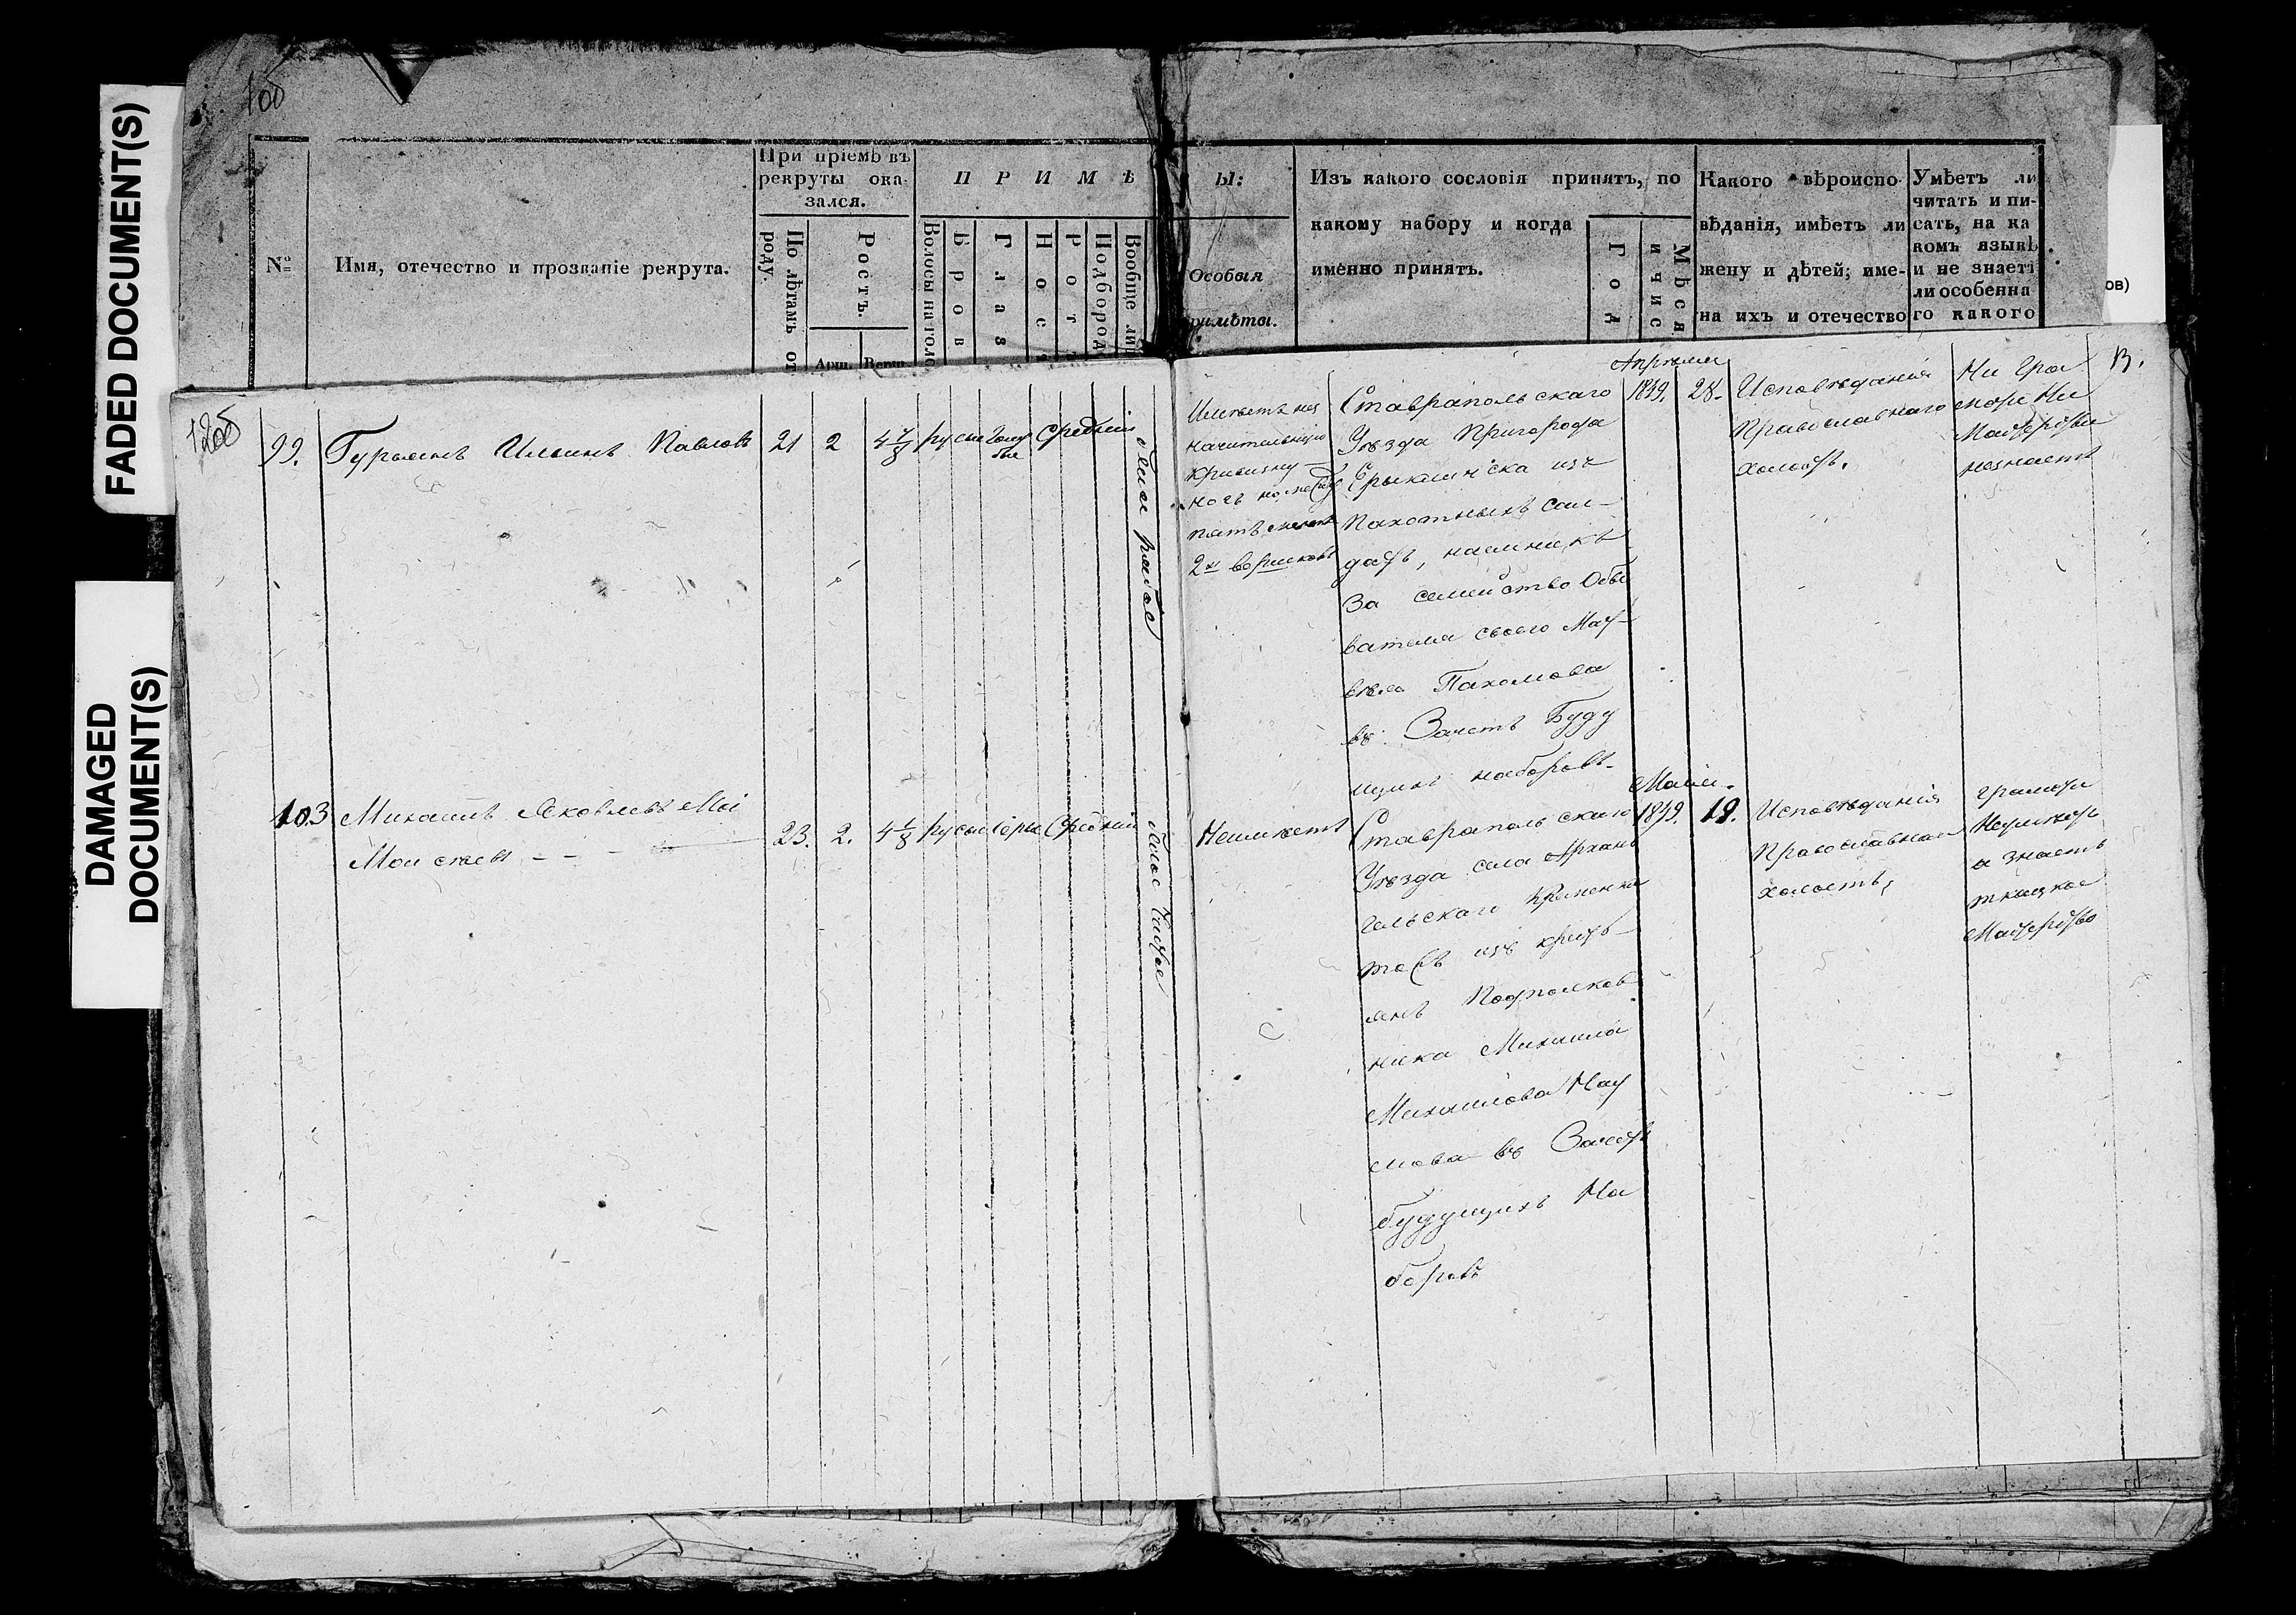 FADED DOCUMENT(S)
DAMAGED
DOCUMENT(S)
100
№
Имя, отечество и прозваніе рекрута.
При пріемѣ въ
рекруты ока-
зался.
По лѣтамъ от
роду.
Ростъ.
Арш. Верш.
ПРИМѢ
Волосы на голо
Бров
Глаз
Нос
Рот
Подбород
Вообще ли
Ы:
Особыя
римѣты.
Изъ какого сословія принятъ, по
какому набору и когда
именно принятъ.
Год
Мѣся
и чис
Какого вѣроиспо-
вѣданія, имѣетъ ли
жену и дѣтей; име-
на ихъ и отечество
Умѣетъ ли
читать и пи-
сать, на ка
комъ языкѣ
и не знаетъ
ли особенна
го какого
ов)
99. Гурьянъ Ильинъ Павловъ 21 2 4 7/8 русые Голу
бые Средній
лице рябое
Имѣетъ нез
начительную
кривизну
ногъ
пятъ
2хъ вершковъ
Ставрапольскаго
Уѣзда Пригорода
Ерыклинска изъ
Пахотныхъ Сал-
датъ, наемникъ
За семейство Обы
вателя своего Мат-
вѣя Пахомова
въ Зачетъ Буду
щихъ наборовъ-
Апрѣля
1849. 28.
Исповѣданія
Православнаго
холостъ.
Ни Гра
моты Ни
Мастерства
незнаетъ
13.
103 Михаилъ Яковлевъ Мои
Моисеевъ - - - 23. 2. 4 1/8 русые Серые Средній
лице чистое
Неимѣетъ
Ставрапольскаго
Уѣзда села Архан
гельскаго
тожъ изъ кресть-
янъ Подполков
ника Михаила
Михайлова Нау
мова въ Зачетъ
будущихъ На
боровъ
Маія.
1849. 19.
Исповѣданія
Православнаго
холостъ,
грамоты
Неумѣетъ
а знаетъ
ткацкое
Мастерство